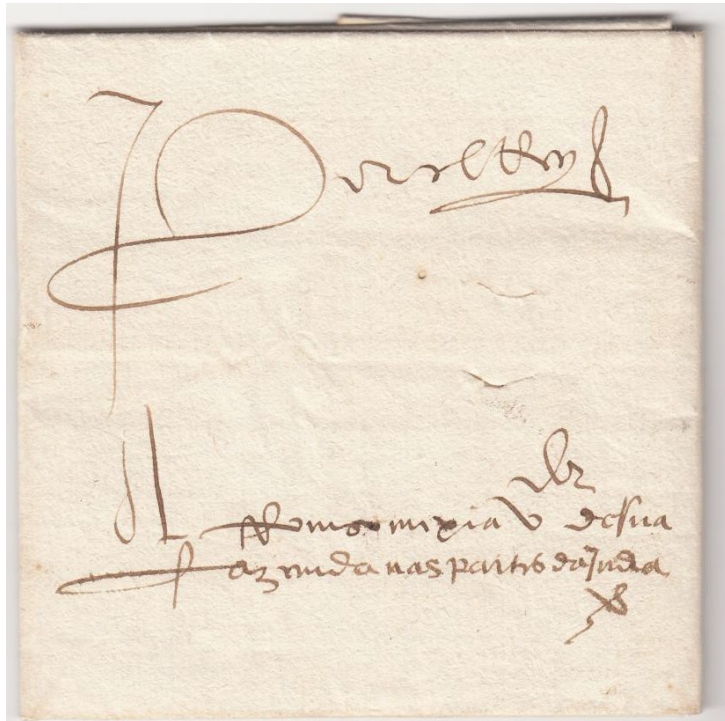 Por el Rey
A Afonso mexia vdor de sua
fazenda nas partes da Jndia